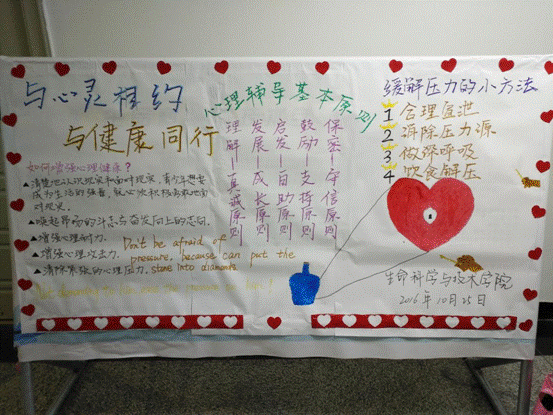 与心灵相约
与健康同行
如何增强心理健康?
▲清楚地认识现实和面对现实,青少年想要
成为生活的强者,就必须积极勇敢地面
对现实.
▲唤起昂扬的斗志与奋发向上的志向.
▲增强心理耐力.
▲增强心理攻击力.
▲消除紧张的心理压力.
Don't be afraid of
pressure, because can put the
stone into diamonds
心理辅导基本原则
保密—守信原则
鼓励—支持原则
启发—自助原则
发展—成长原则
理解—真诚原则
缓解压力的小方法
1 合理宣泄
2 消除压力源
3 做深呼吸
4 饮食解压
生命科学与技术学院
2016年10月25日